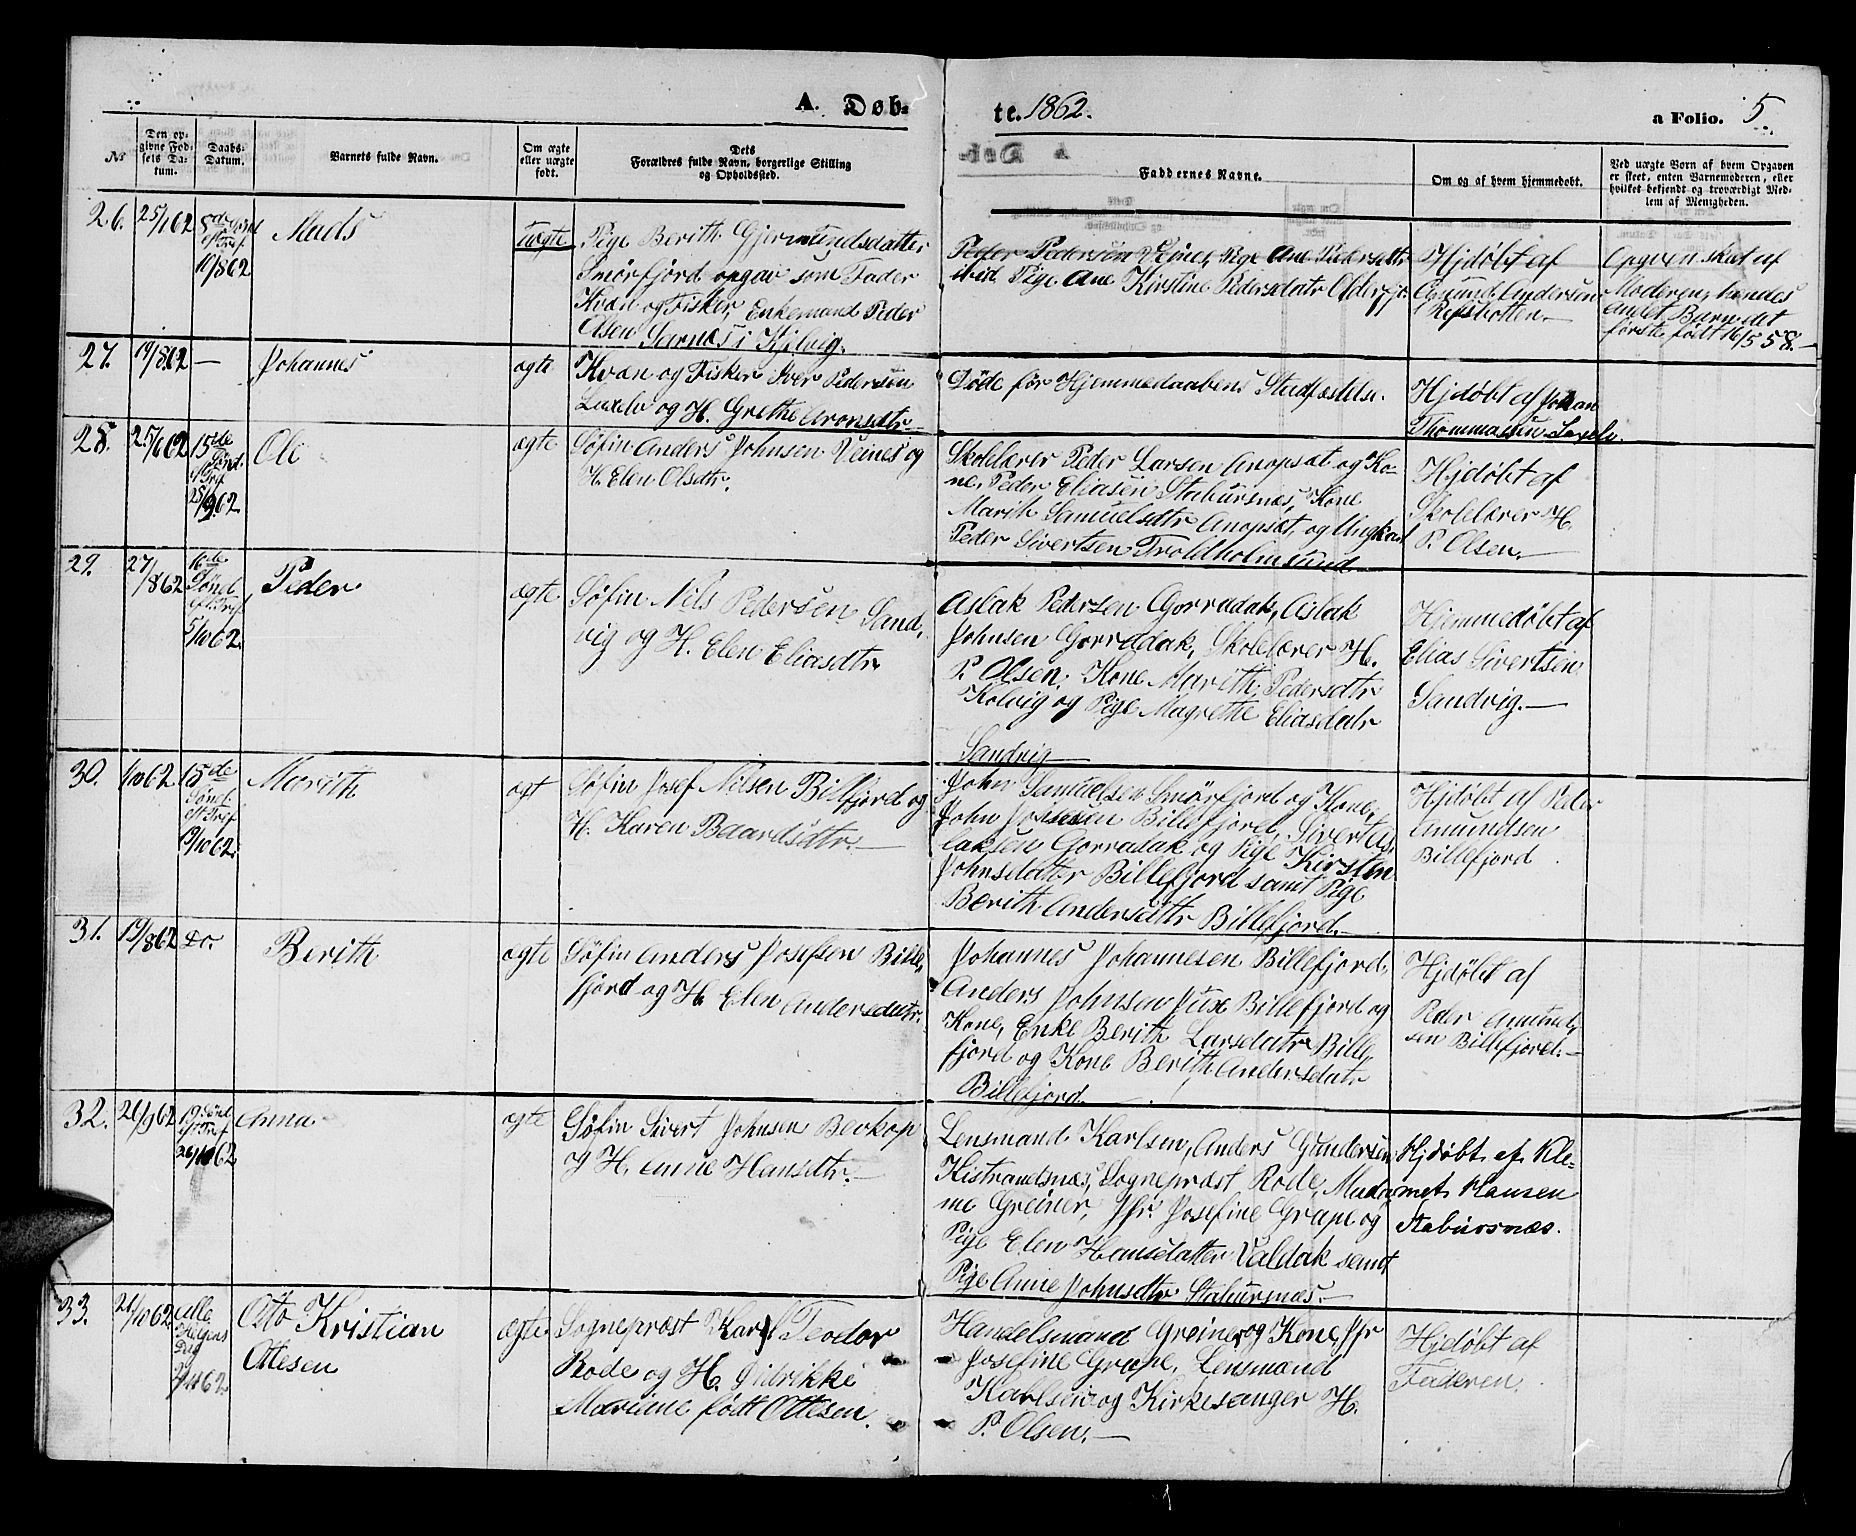 A. Døb-
te. 1862.
a Folio. 5
№
Den op-
givne Fød-
sels Da-
tum.
Daabs-
Datum.
Barnets fulde Navn.
Om ægte
eller uægte
født.
Dets
Forældres fulde Navn, borgerlige Stilling
og Opholdssted.
Faddernes Navne.
Om og af hvem hjemmedøbt.
Ved uægte Børn af hvem Opgaven
er skeet, enten Barnemoderen, eller
hvilket bekjendt og troværdigt Med-
lem af Menigheden.
26.
8de Sønd
eft Tref
10/8 62
Mads
uægte
Pige Berith Gjermundsdatter
Smörfjord opgav som Fader
Kvæn og Fisker, Enkemand Peder
Olsen Sarnæs i Kjelvig.
Peder Pedersen Veines, Pige Ane Pedersdtr
ibid Pige Ane Kirstine Pedersdatr Olderfjr.
Hjdøbt af
Amund Andersen
Refsbotten.—
Opgven skat af
Moderen, hendes
andet Barn det
förste født 16/5 58.—
27.
19/8 62
—
Johannes
ægte
Kvæn og Fisker Iver Pedersen
Laxelv og H. Grethe Aronsdtr.—
Døde før Hjemmedaabens Stadfæstelse.
Hjdøbt af Johan
Thommassen Laxelv
28.
25/6 62
15de
Sønd.
eft Tref
28/9 62
Ole
ægte
Søfin Anders Johnsen Veines og
H. Elen Olsdtr.
Skolelærer Peder Larsen Anopsæt og Ko-
ne, Peder Eliasen Stabursnæs, Kone
Marith Samuelsdtr Anopsæt, og Ungkarl
Peder Sivertsen Troldholmsund
Hjdøbt af
Skolelærer H.
P. Olsen.—
29.
27
/8 62
16de
Sønd.
eft Tref
5/10 62
Peder
ægte
Søfin Nils Pedersen Sand,
vig og H. Elen Eliasdtr
Aslak Pedersen Gorradak, Aslak
Johnsen Gorradak, Skolelærer H.
P. Olsen, Kone Marith Pedersdtr
Kolvig og Pige Magrethe Eliasdatr
Sandvig
Hjemmedøbt af
Elias Sivertsen
Sandvig.—
30.
1/10 62
18de
Sønd.
eft Tref
19/10 62
Marith
ægt
Søfin Josef Nilsen Billefjord og
H. Karen Baardsdtr.—
John Samuelsen Smörfjord og Kone,
John Johnsen Billefjord, Sivert As,
laksen Gorradak og Pige Kirsten
Johnsdatter Billefjord samt Pige
Berith Andersdtr Billefjord.—
Hjdøbt af Peder
Amundsen
Billefjord
31.
19/8 62
Do.
Berith
ægte
Søfin Anders Josefsen Bille,
fjord og H. Elen Andersdatr.
Johannes Johannesen Billefjord,
Anders Johnsen Billefjord og
Kone, Enke Berith Larsdatr Bille,
fjord og Kone Berith Andersdatr
Billefjord.
Hjdøbt af
Peder Amund,
sen Billefjord.—
32.
21/9 62
19 Sønd
eft Tref
26/10 62
Anna
ægte
Søfin Sivert Johnsen Bevkop
H. Anne Hansdtr.—
Lensmand Karlsen, Anders Gundersen
Kistrandsnæs, Sognepræst Rode, Mada,
me Greiner, Jfr. Josefine Grape og
Pige Elen Hansdatter Valdak samt
Pige Anne Johnsdtr Stabursnæs.—
Hjdøbt af Kle-
met Hansen
Stabursnæs.
33.
Alle
Helgens
Dag
Otto Kristian
Ottesen
ægte
Sognepræst Karl Teodor
Rode og H. Didrikke
Mariane født Ottesen.
Handelsmand Greiner og Kone, Jfr
Josefine Grape, Lensmand
Karlsen og Kirkesanger H.
P. Olsen.—
Hjdøbt af
Faderen.